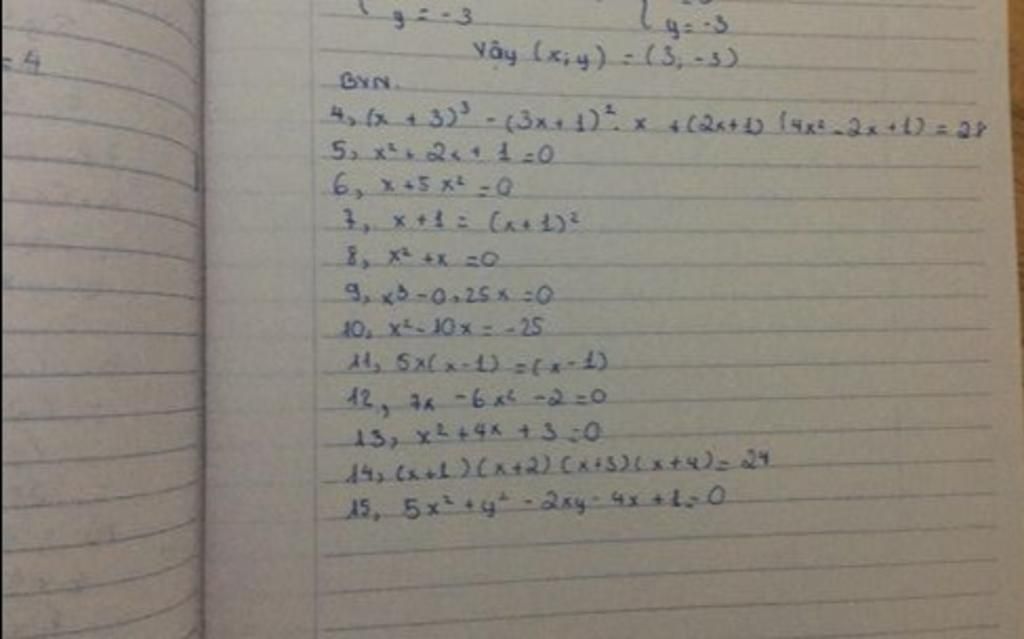 y = -3 y = -3
= 4
Vậy (x; y) = (3, -3)
BVN.
4, (x + 3)³ - (3x + 1)². x + (2x+1) (4x² - 2x + 1) = 28
5, x² + 2x + 1 = 0
6, x + 5x² = 0
7, x + 1 = (x + 1)²
8, x² + x = 0
9, x3 - 0,25x = 0
10, x² - 10x = -25
11, 5x(x - 1) = (x - 1)
12, 7x - 6x² - 2 = 0
13, x² + 4x + 3 = 0
14, (x+1) (x+2) (x+3) (x+4) = 24
15, 5x² + y² - 2xy - 4x + 1 = 0